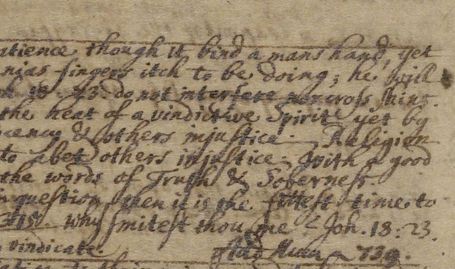 atience though it bind a mans hand, yet
nias fingers itch to be doing; he will
18. 23. do not interfere nor cross shins.
the heat of a vindictive Spirit yet by
ocency & others injustice Religion
to abet others injustice with a good
the words of Truth & Soberness
question, then it is the fittest time to
why smitest thou me Joh. 18: 23.
vindicate 739.